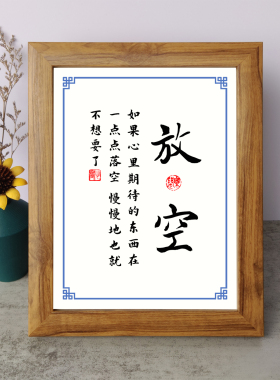 放空
如果心里期待的东西在
一点点落空 慢慢地也就
不想要了